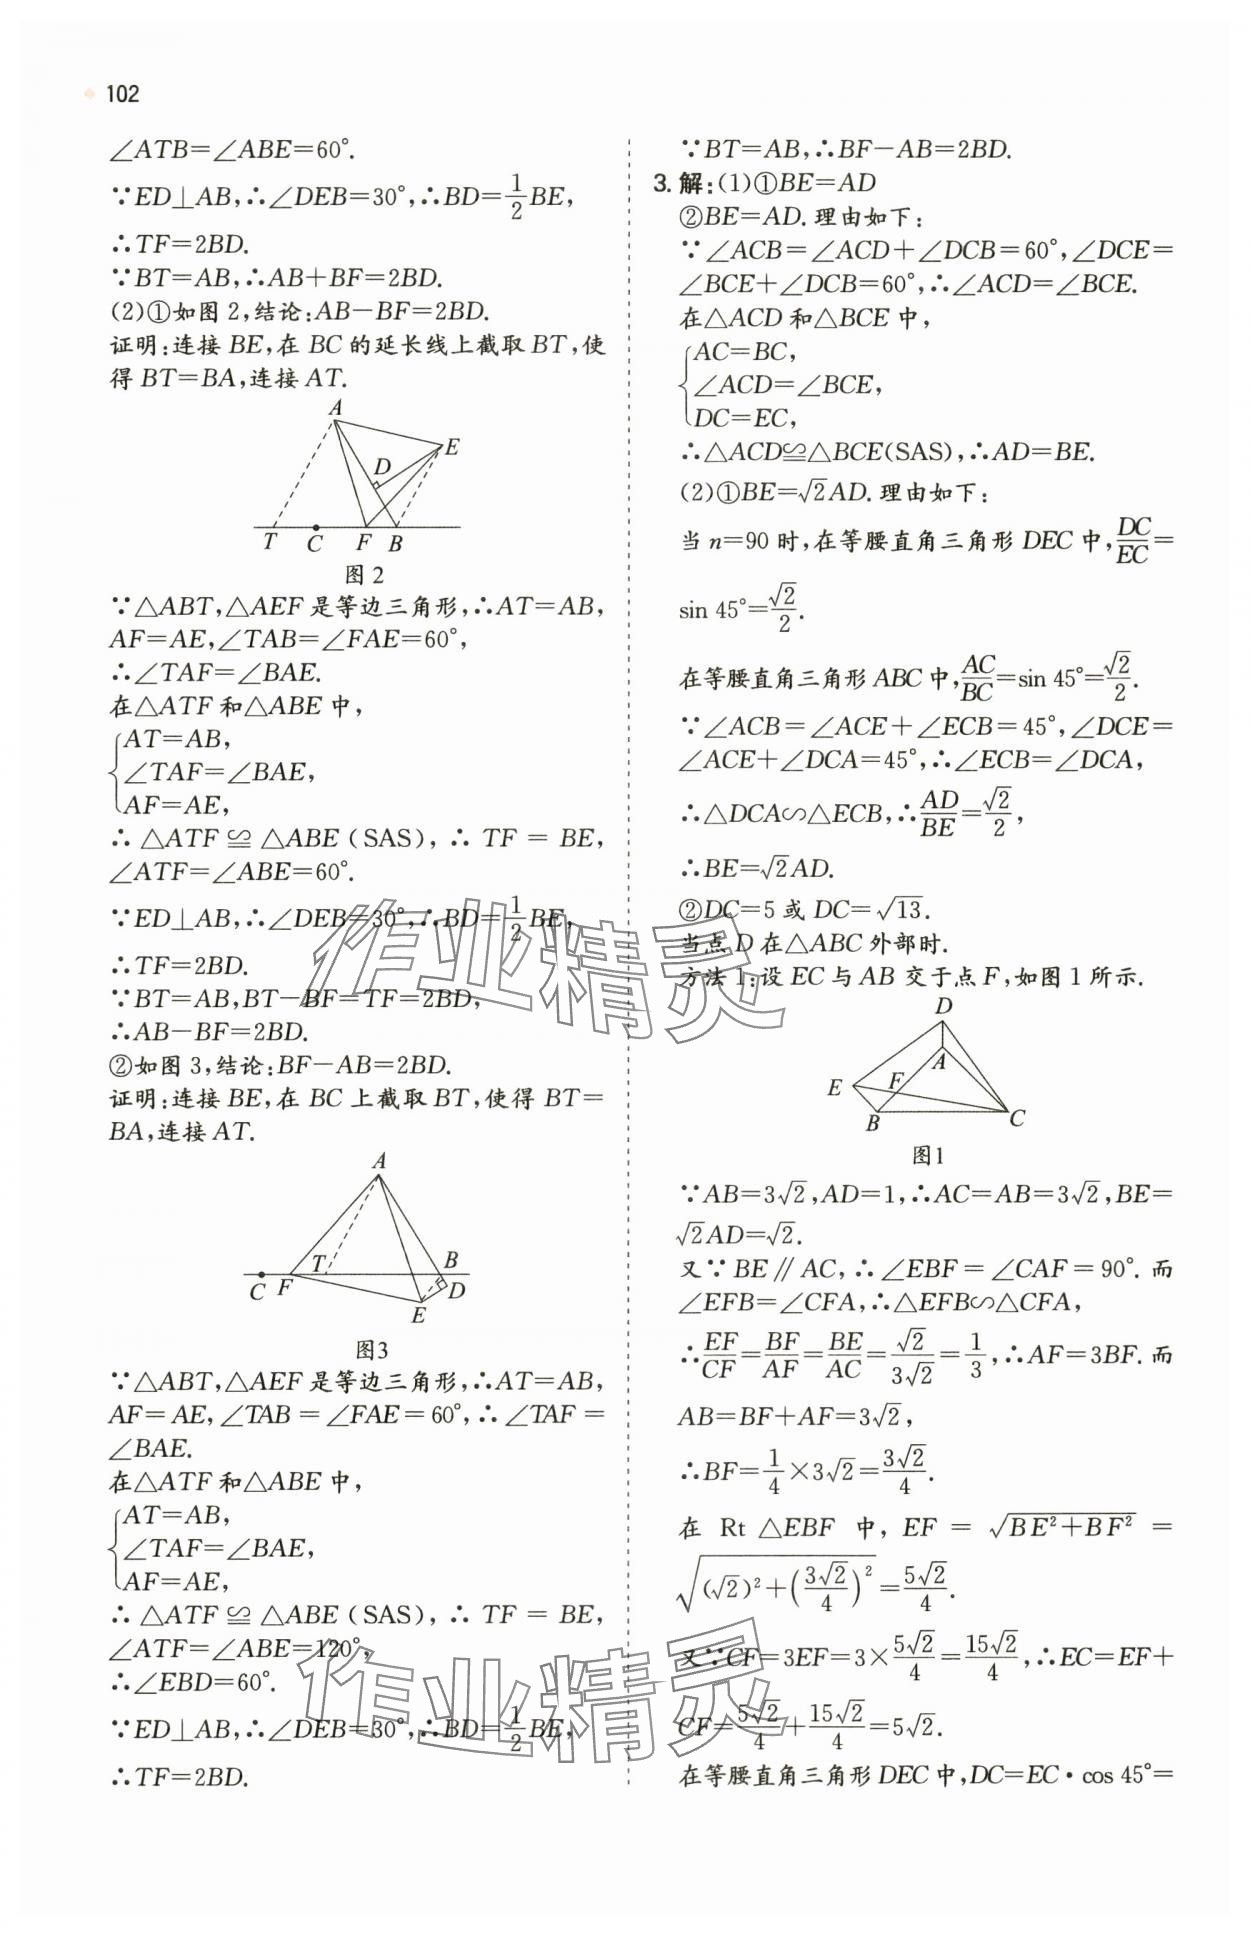 102
∠ATB=∠ABE=60°.
∵ED⊥AB,∴∠DEB=30°,∴BD=1/2BE,
∴TF=2BD.
∵BT=AB,∴AB+BF=2BD.
(2)①如图2,结论:AB-BF=2BD.
证明:连接BE,在BC的延长线上截取BT,使
得BT=BA,连接AT.
A
E
D
T C F B
图2
∵△ABT,△AEF是等边三角形,∴AT=AB,
AF=AE,∠TAB=∠FAE=60°,
∴∠TAF=∠BAE.
在△ATF和△ABE中,
AT=AB,
∠TAF=∠BAE,
AF=AE,
∴△ATF≌△ABE(SAS),∴TF=BE,
∠ATF=∠ABE=60°.
∵ED⊥AB,∴∠DEB=30°,∴BD=1/2BE,
∴TF=2BD.
∵BT=AB,BT-BF=TF=2BD,
∴AB-BF=2BD.
②如图3,结论:BF-AB=2BD.
证明:连接BE,在BC上截取BT,使得BT=
BA,连接AT.
A
T B
C F D
E
图3
∵△ABT,△AEF是等边三角形,∴AT=AB,
AF=AE,∠TAB=∠FAE=60°,∴∠TAF=
∠BAE.
在△ATF和△ABE中,
AT=AB,
∠TAF=∠BAE,
AF=AE,
∴△ATF≌△ABE(SAS),∴TF=BE,
∠ATF=∠ABE=120°,
∴∠EBD=60°.
∵ED⊥AB,∴∠DEB=30°,∴BD=1/2BE,
∴TF=2BD.
∵BT=AB,∴BF-AB=2BD.
3.解:(1)①BE=AD
②BE=AD.理由如下:
∵∠ACB=∠ACD+∠DCB=60°,∠DCE=
∠BCE+∠DCB=60°,∴∠ACD=∠BCE.
在△ACD和△BCE中,
AC=BC,
∠ACD=∠BCE,
DC=EC,
∴△ACD≌△BCE(SAS),∴AD=BE.
(2)①BE=√2AD.理由如下:
当n=90时,在等腰直角三角形DEC中,DC/EC=
sin 45°=√2/2.
在等腰直角三角形ABC中,AC/BC=sin 45°=√2/2.
∵∠ACB=∠ACE+∠ECB=45°,∠DCE=
∠ACE+∠DCA=45°,∴∠ECB=∠DCA,
∴△DCA∽△ECB,∴AD/BE=√2/2,
∴BE=√2AD.
②DC=5或DC=√13.
当点D在△ABC外部时.
方法1:设EC与AB交于点F,如图1所示.
D
A
E F
B C
图1
∵AB=3√2,AD=1,∴AC=AB=3√2,BE=
√2AD=√2.
又∵BE∥AC,∴∠EBF=∠CAF=90°.而
∠EFB=∠CFA,∴△EFB∽△CFA,
∴EF/CF=BF/AF=BE/AC=√2/3√2=1/3,∴AF=3BF.而
AB=BF+AF=3√2,
∴BF=1/4×3√2=3√2/4.
在Rt△EBF中,EF=√(BE²+BF²)=
√((√2)²+(3√2/4)²)=5√2/4.
又∵CF=3EF=3×5√2/4=15√2/4,∴EC=EF+
CF=5√2/4+15√2/4=5√2.
在等腰直角三角形DEC中,DC=EC·cos 45°=
作业精灵
作业精灵